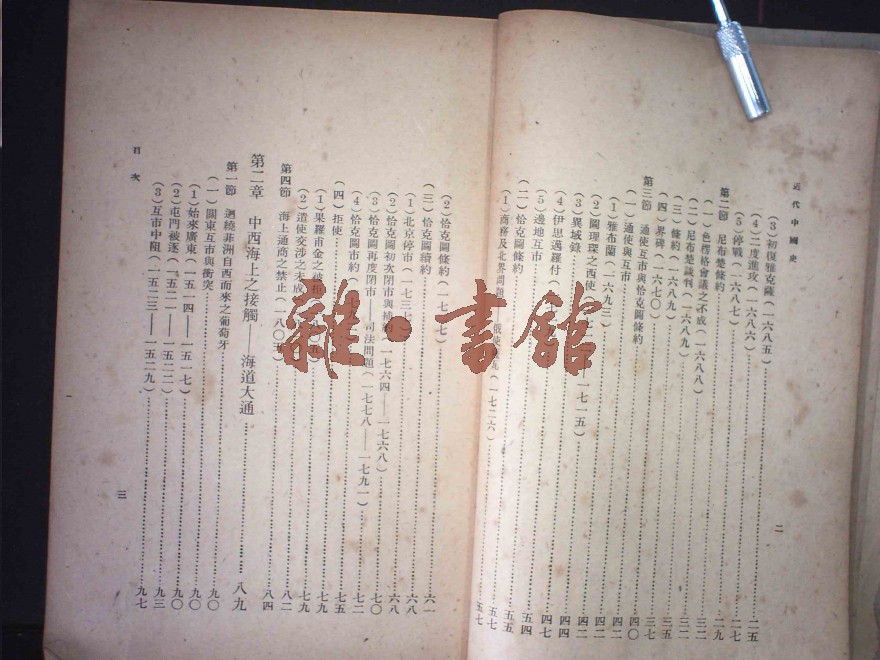 近代中國史
二
(3)初復雅克薩(一六八五)……二五
(4)二度進攻(一六八六)……二七
(5)停戰(一六八七)……二九
第二節 尼布楚條約
(一)色楞格會議之不成(一六八八)……三二
(二)尼布楚談判(一六八九)……三二
(三)條約(一六八九)……三五
(四)界碑(一六七〇)……三七
第三節 通使互市與恰克圖條約
(一)通使與互市……四〇
(1)雅布蘭(一六九三)……四二
(2)圖理琛之西使
一七一五)……四二
(3)異域錄……四四
(4)伊思邁羅付
(5)邊地互市……四七
(二)恰克圖條約……五四
(1)商務及北界問題
(一七二六)……五七
(2)恰克圖條約(一七
七)……六一
(三)恰克圖續約……六八
(1)北京停市(一七三七)……六八
(2)恰克圖初次閉市與
一七六四——一七六八)……七〇
(3)恰克圖再度閉市——司法問題(一七七八——一七九一)……七二
(4)恰克圖市約
(四)拒使……七五
(1)果羅甫金之被拒
……七九
(2)遣使交涉之未成
第四節 海上通商之禁止(一八〇五)……八四
第二章 中西海上之接觸——海道大通……八九
第一節 遶繞非洲自西而來之葡萄牙……九〇
(一)關東互市與衝突……九〇
(1)始來廣東(一五一四——一五一七)……九〇
(2)屯門被逐(一五二一——一五二二)……九三
(3)互市中阻(一五二三——一五二九)……九七
目次
三
雜·書館